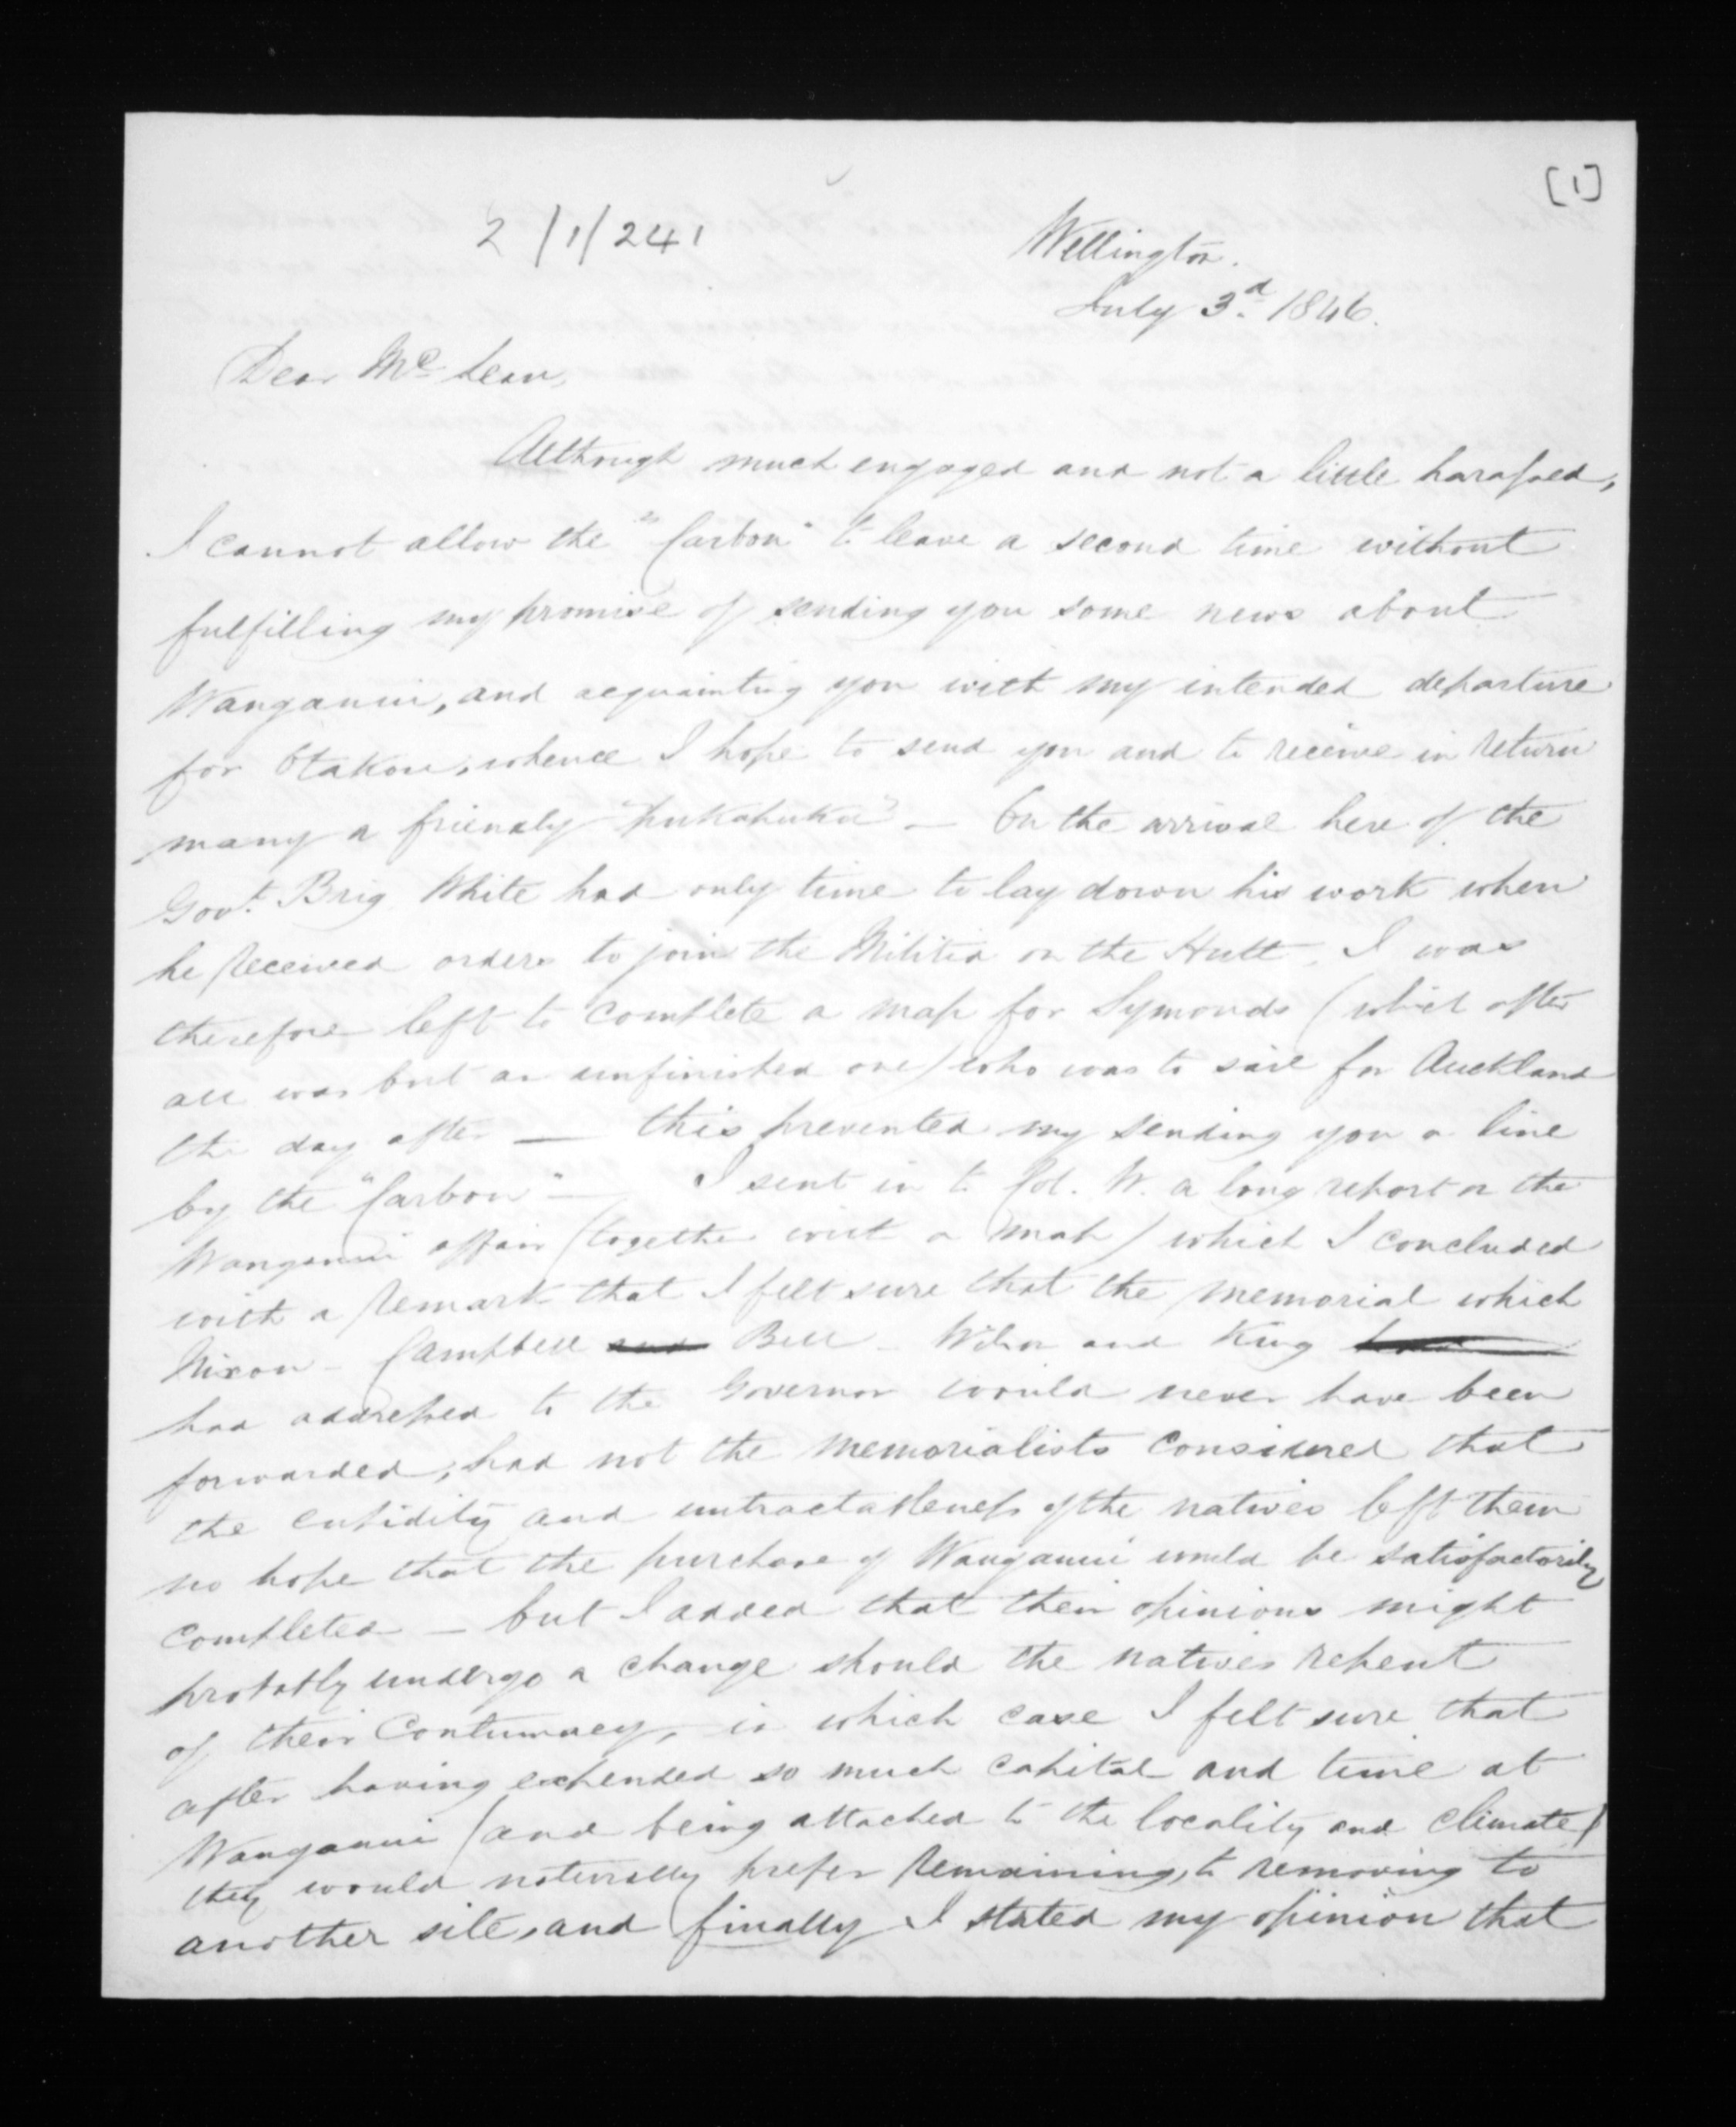 [1]
2/1/241
Wellington.
July 3.d 1846.
Dear Mc Lean,
Although much engaged and not a little harassed,
I cannot allow the "Carbon" to leave a second time without
fulfilling my promise of sending you some news about
Wanganui, and acquainting you with my intended departure
for Otakou, whence I hope to send you and to receive in return
many a friendly "pukapuka" — On the arrival here of the
Govt. Brig White had only time to lay down his work when
he received orders to join the Militia on the Hutt. I was
therefore left to complete a map for Symonds (which after
all was but an unfinished one) who was to sail for Auckland
the day after — this prevented my sending you a line
by the "Carbon" — I sent in to Col. W. a long report on the
Wanganui affair (together with a map) which I concluded
with a remark that I felt sure that the memorial which
Nixon - Campbell and Bell - Wilson and King
had addressed to the Governor would never have been
forwarded, had not the memorialists considered that
the cupidity and untractableness of the natives left them
no hope that the purchase of Wanganui would be satisfactorily
completed — but I added that their opinions might
probably undergo a change should the natives repent
of their Contumacy, in which case I felt sure that
after having expended so much capital and time at
Wanganui (and being attached to the locality and climate)
they would naturally prefer remaining, to removing to
another site, and finally I stated my opinion that